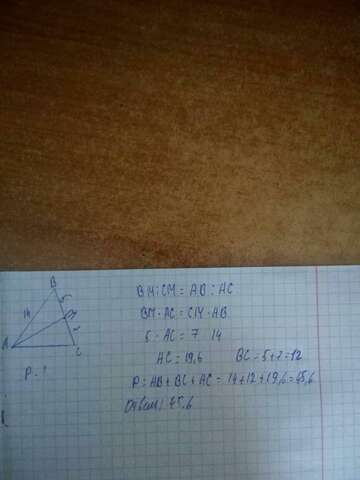 B
14
5
M
7
A
C
P - ?
BM:CM = AB:AC
BM · AC = CM · AB
5 · AC = 7 14
AC = 19,6 BC = 5+7=12
P = AB + BC + AC = 14+12+19,6=45,6
Ответ: 45,6